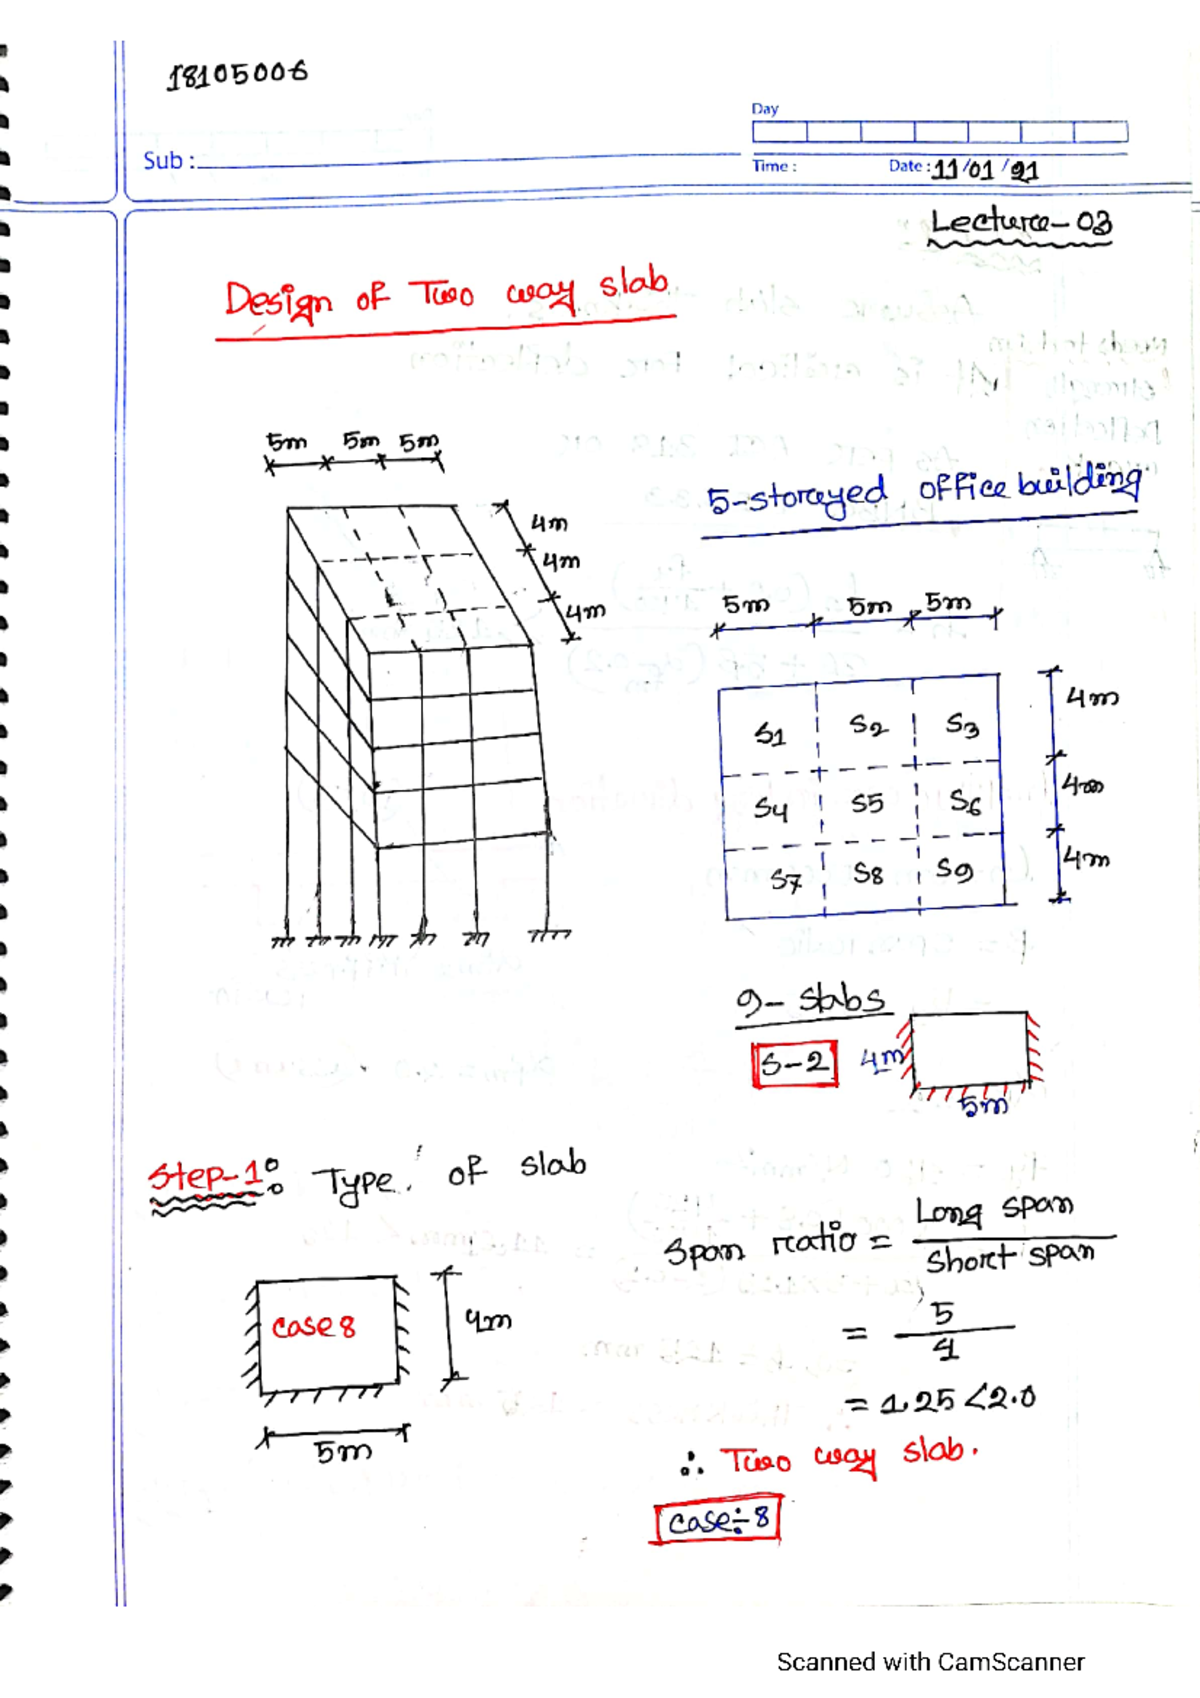 18105006
Day
Sub :
Time :
Date : 11/01/21
Lecture-03
Design of Two way slab
5m 5m 5m
4m
4m
4m
5-storeyed office building
5m 5m 5m
S1 S2 S3
4m
S4 S5 S6
4m
S7 S8 S9
4m
9- slabs
S-2
4m
5m
Step-1: Type of slab
Span ratio = Long span / Short span
case 8
4m
5m
= 5 / 4
= 1.25 < 2.0
∴ Two way slab.
case÷ 8
Scanned with CamScanner